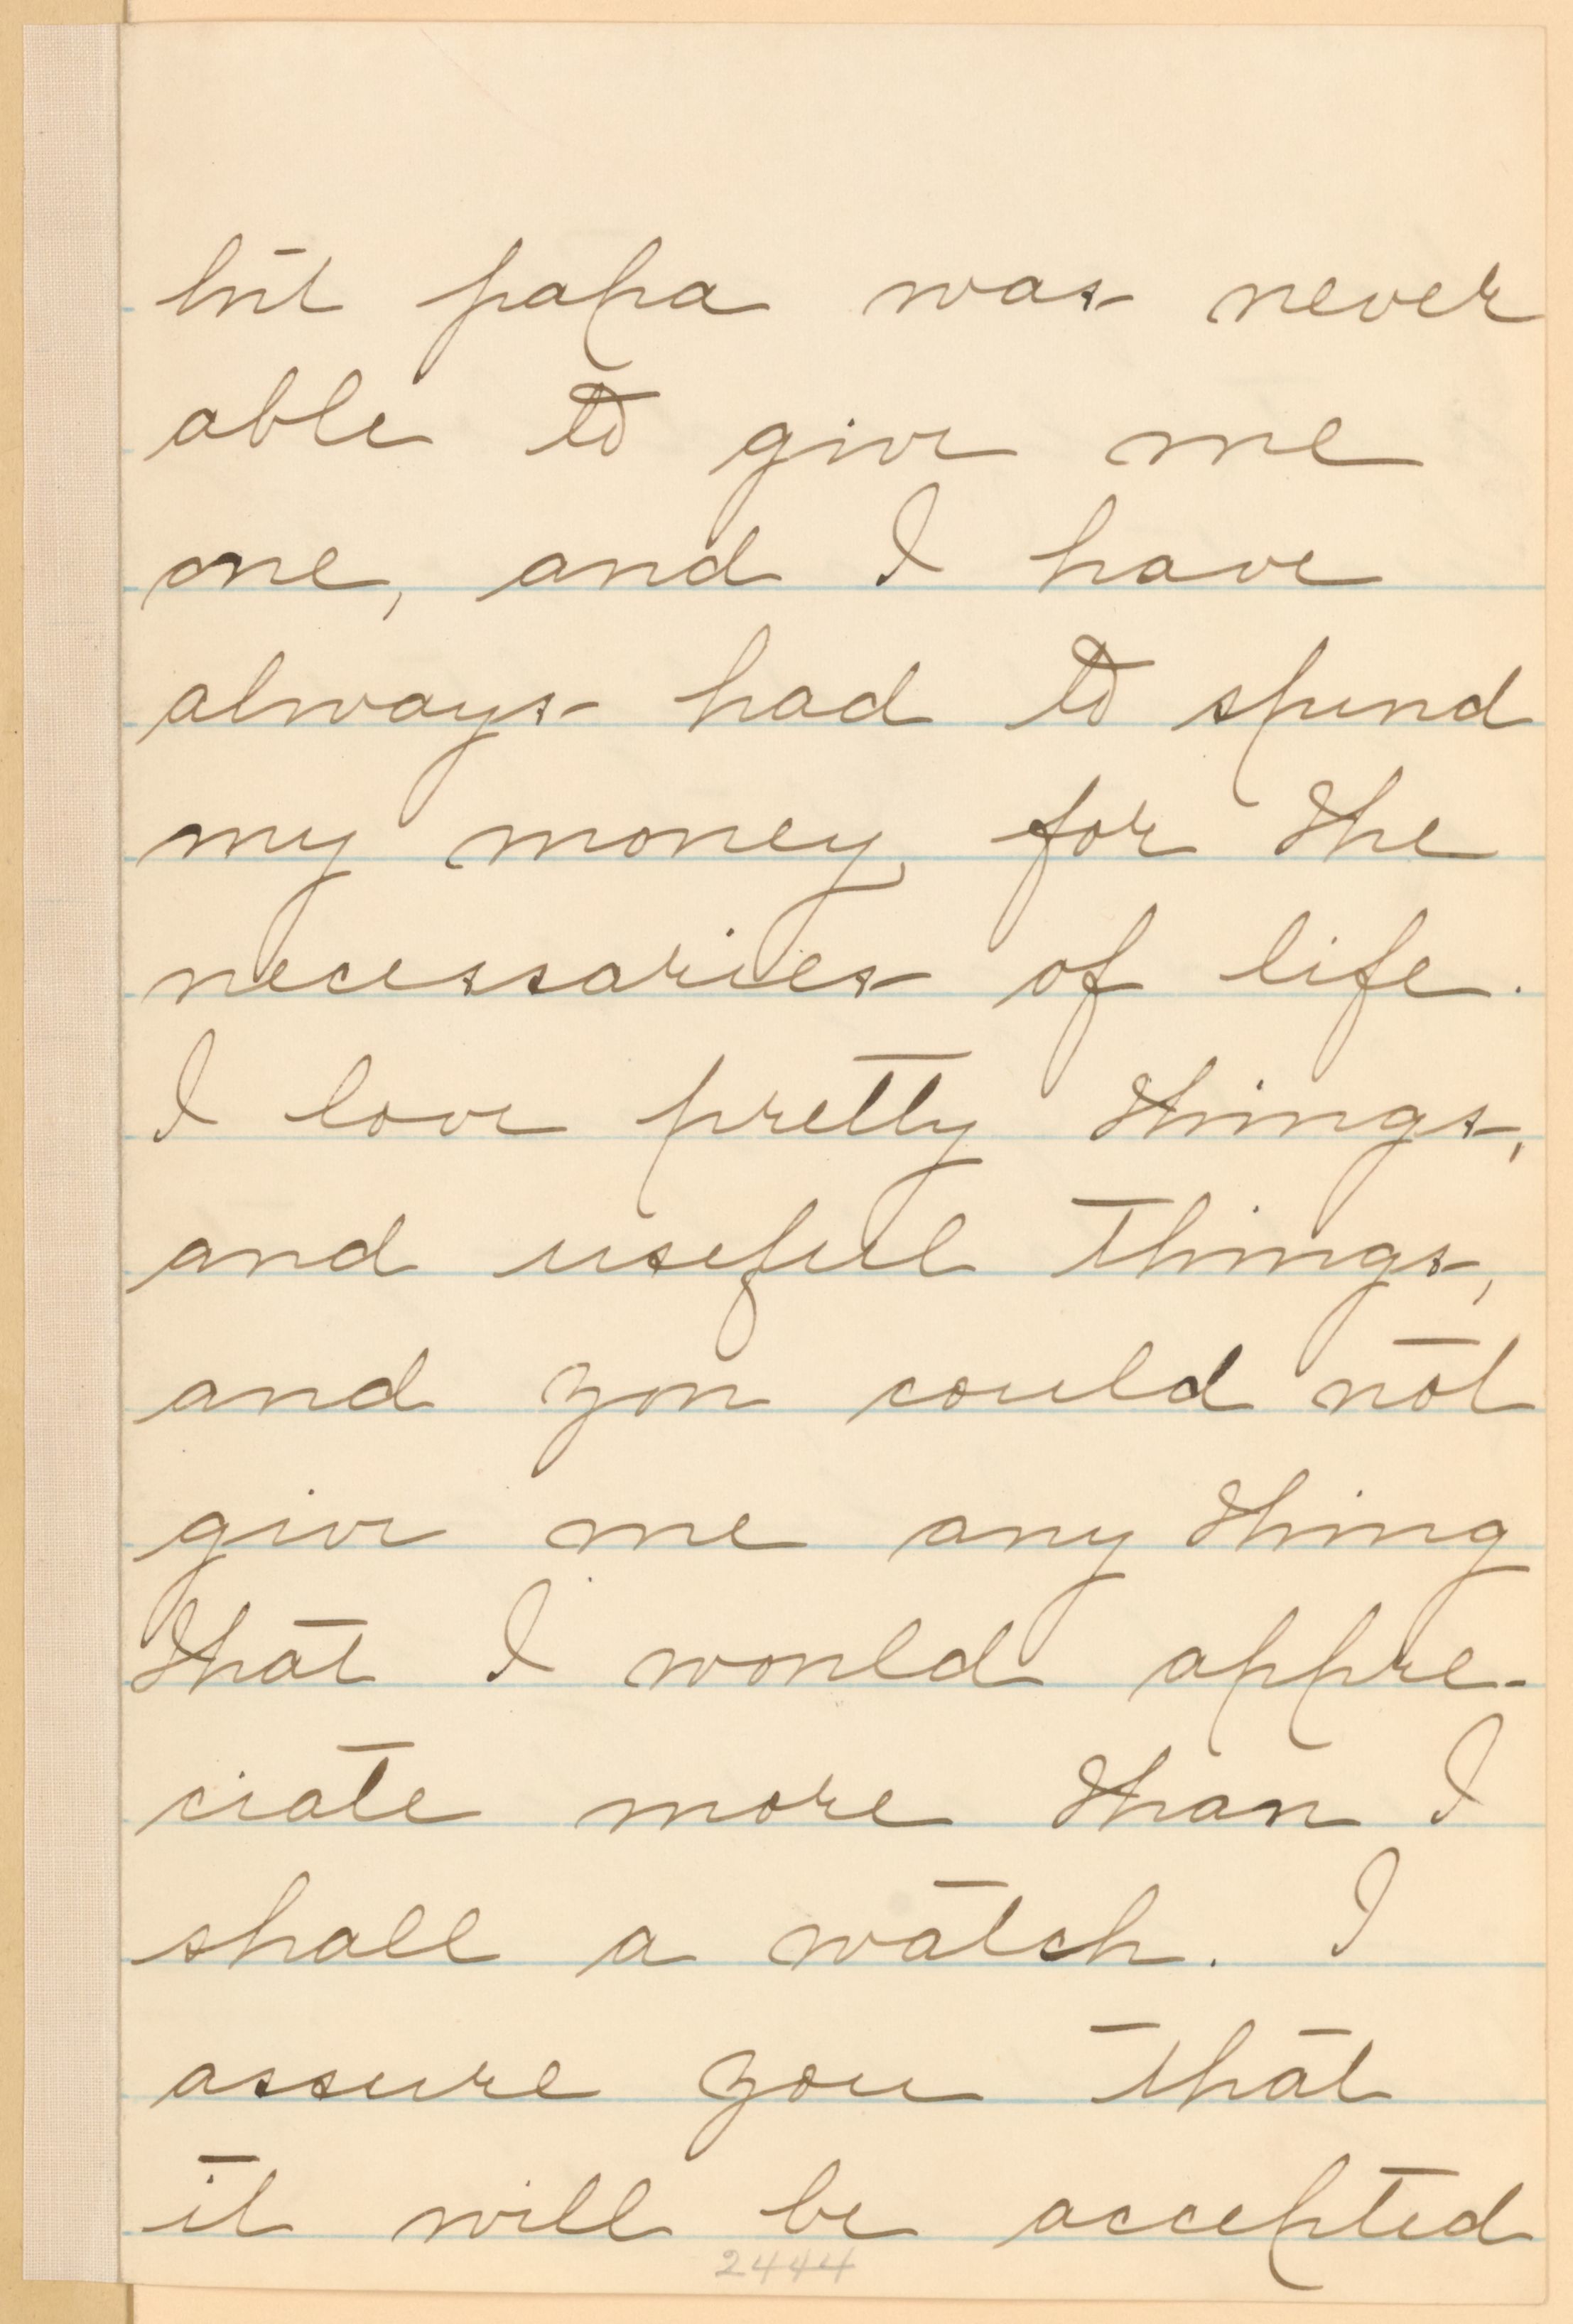 but papa was never
able to give me
one, and I have
always had to spend
my money for the
necessaries of life.
I love pretty things,
and useful things,
and you could not
give me any thing
that I would appre-
ciate more than I
shall a watch. I
assure you that
it will be accepted
2444